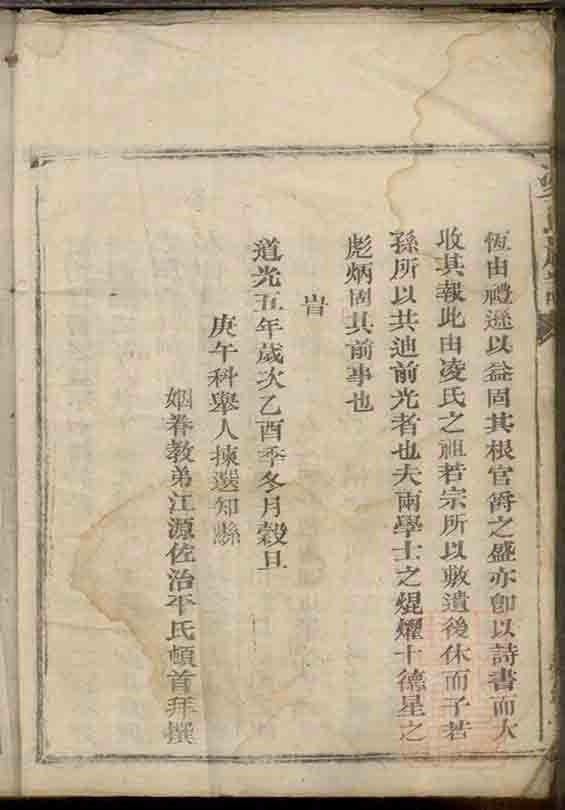 恆由禮遜以益固其根官爵之盛亦卽以詩書而大
收其報此由凌氏之祖若宗所以敷遺後休而子若
孫所以共迪前光者也夫兩學士之焜燿十德星之
彪炳固其前事也
旹
道光五年歲次乙酉季冬月榖旦
庚午科舉人揀選知縣
姻眷教弟江源佐治平氏頓首拜撰